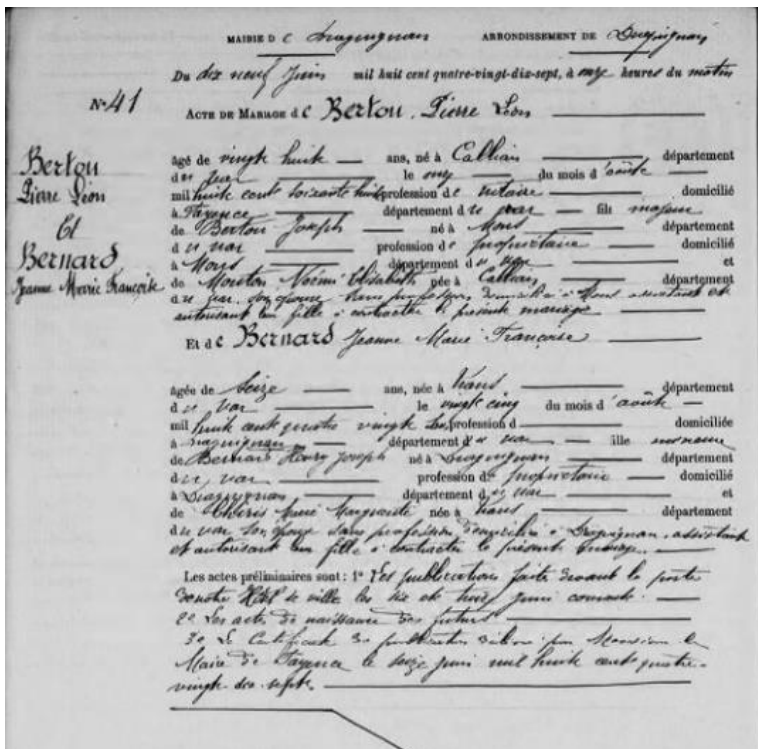 MAIRIE D e Draguignan ARRONDISSEMENT DE Draguignan
Du dix neuf Juin mil huit cent quatre-vingt-dix-sept, à onze heures du matin
N° 41
ACTE DE MARIAGE d e Berton, Pierre Léon
Berton
Pierre Léon
Et
Bernard
Jeanne Marie Françoise
âgé de vingt huit ans, né à Callian département
du var le onze du mois d'août
mil huit cent soixante huit profession de notaire domicilié
à Fayence département du var fils majeur
de Berton Joseph né à Mons département
du var profession de propriétaire domicilié
à Mons département du var et
de Mouton Noémi Elisabeth née à Callian département
du var, son épouse sans profession domiciliée à Mons assistant et
autorisant leur fille à contracter le présent mariage
Et de Bernard Jeanne Marie Françoise
âgée de Seize ans, née à Trans département
du var le vingt cinq du mois d'août
mil huit cent quatre vingt profession d domiciliée
à Draguignan département du var fille mineure
de Bernard Henry Joseph né à Draguignan département
du var profession de propriétaire domicilié
à Draguignan département du var et
de Marguerite née à Trans département
du var, son épouse sans profession domiciliée à Draguignan, assistant
et autorisant leur fille à contracter le présent mariage.
Les actes préliminaires sont : 1° Les publications faite devant la porte
de notre Hôtel de ville les six et treize juin courant.
2° Les actes de naissance des futurs
3° Le Certificat de publication délivré par Monsieur le
Maire de Fayence le seize juin mil huit cent quatre-
vingt dix sept.